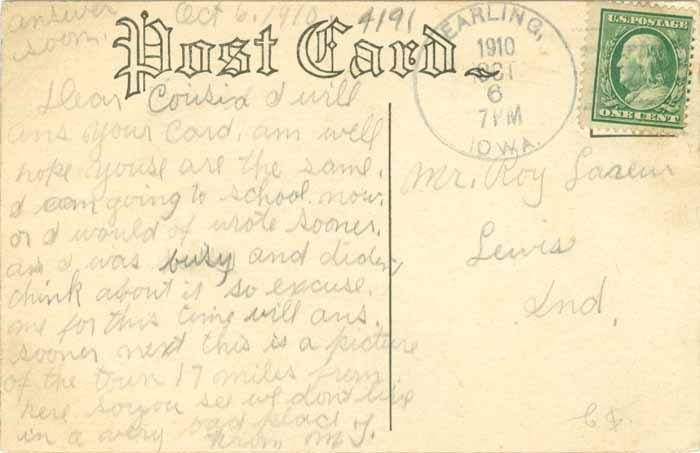 answer Oct 6, 1910, 4191
soon.
Post Card
EARLING,
1910
OCT
6
7 PM
IOWA.
U.S. POSTAGE
ONE CENT
Dear Cousin I will
ans your card. am well
hope youse are the same.
I am going to school now
or I would of wrote sooner.
an I was busy and diden
think about it so excuse.
me for this time will ans.
sooner next this is a picture
of the town 17 miles from
here so you see we dont live
in a very bad place
from M.
Mr. Roy
Lewis
Ind,